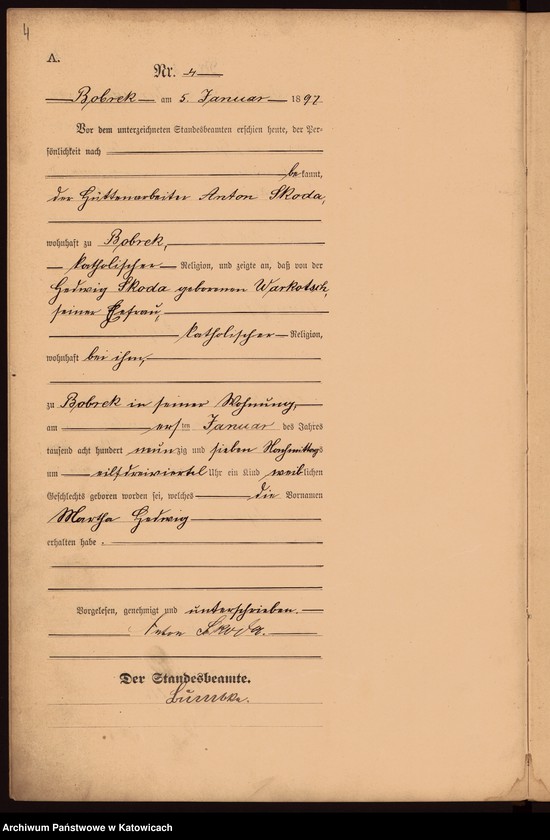 4
A.
Nr. 4
Bobrek am 5. Januar 1897
Vor dem unterzeichneten Standesbeamten erschien heute, der Per-
sönlichkeit nach
bekannt,
der Hüttenarbeiter Anton Skoda,
wohnhaft zu Bobrek,
katholischer Religion, und zeigte an, daß von der
Hedwig Skoda geborenen Warkotsch,
seiner Ehefrau,
katholischer Religion,
wohnhaft bei ihm,
zu Bobrek in seiner Wohnung,
am ersten Januar des Jahres
tausend acht hundert neunzig und sieben Nachmittags
um eilfdreiviertel Uhr ein Kind weiblichen
Geschlechts geboren worden sei, welches die Vornamen
Martha Hedwig
erhalten habe.
Vorgelesen, genehmigt und unterschrieben.
Anton Skoda.
Der Standesbeamte.
Archiwum Państwowe w Katowicach